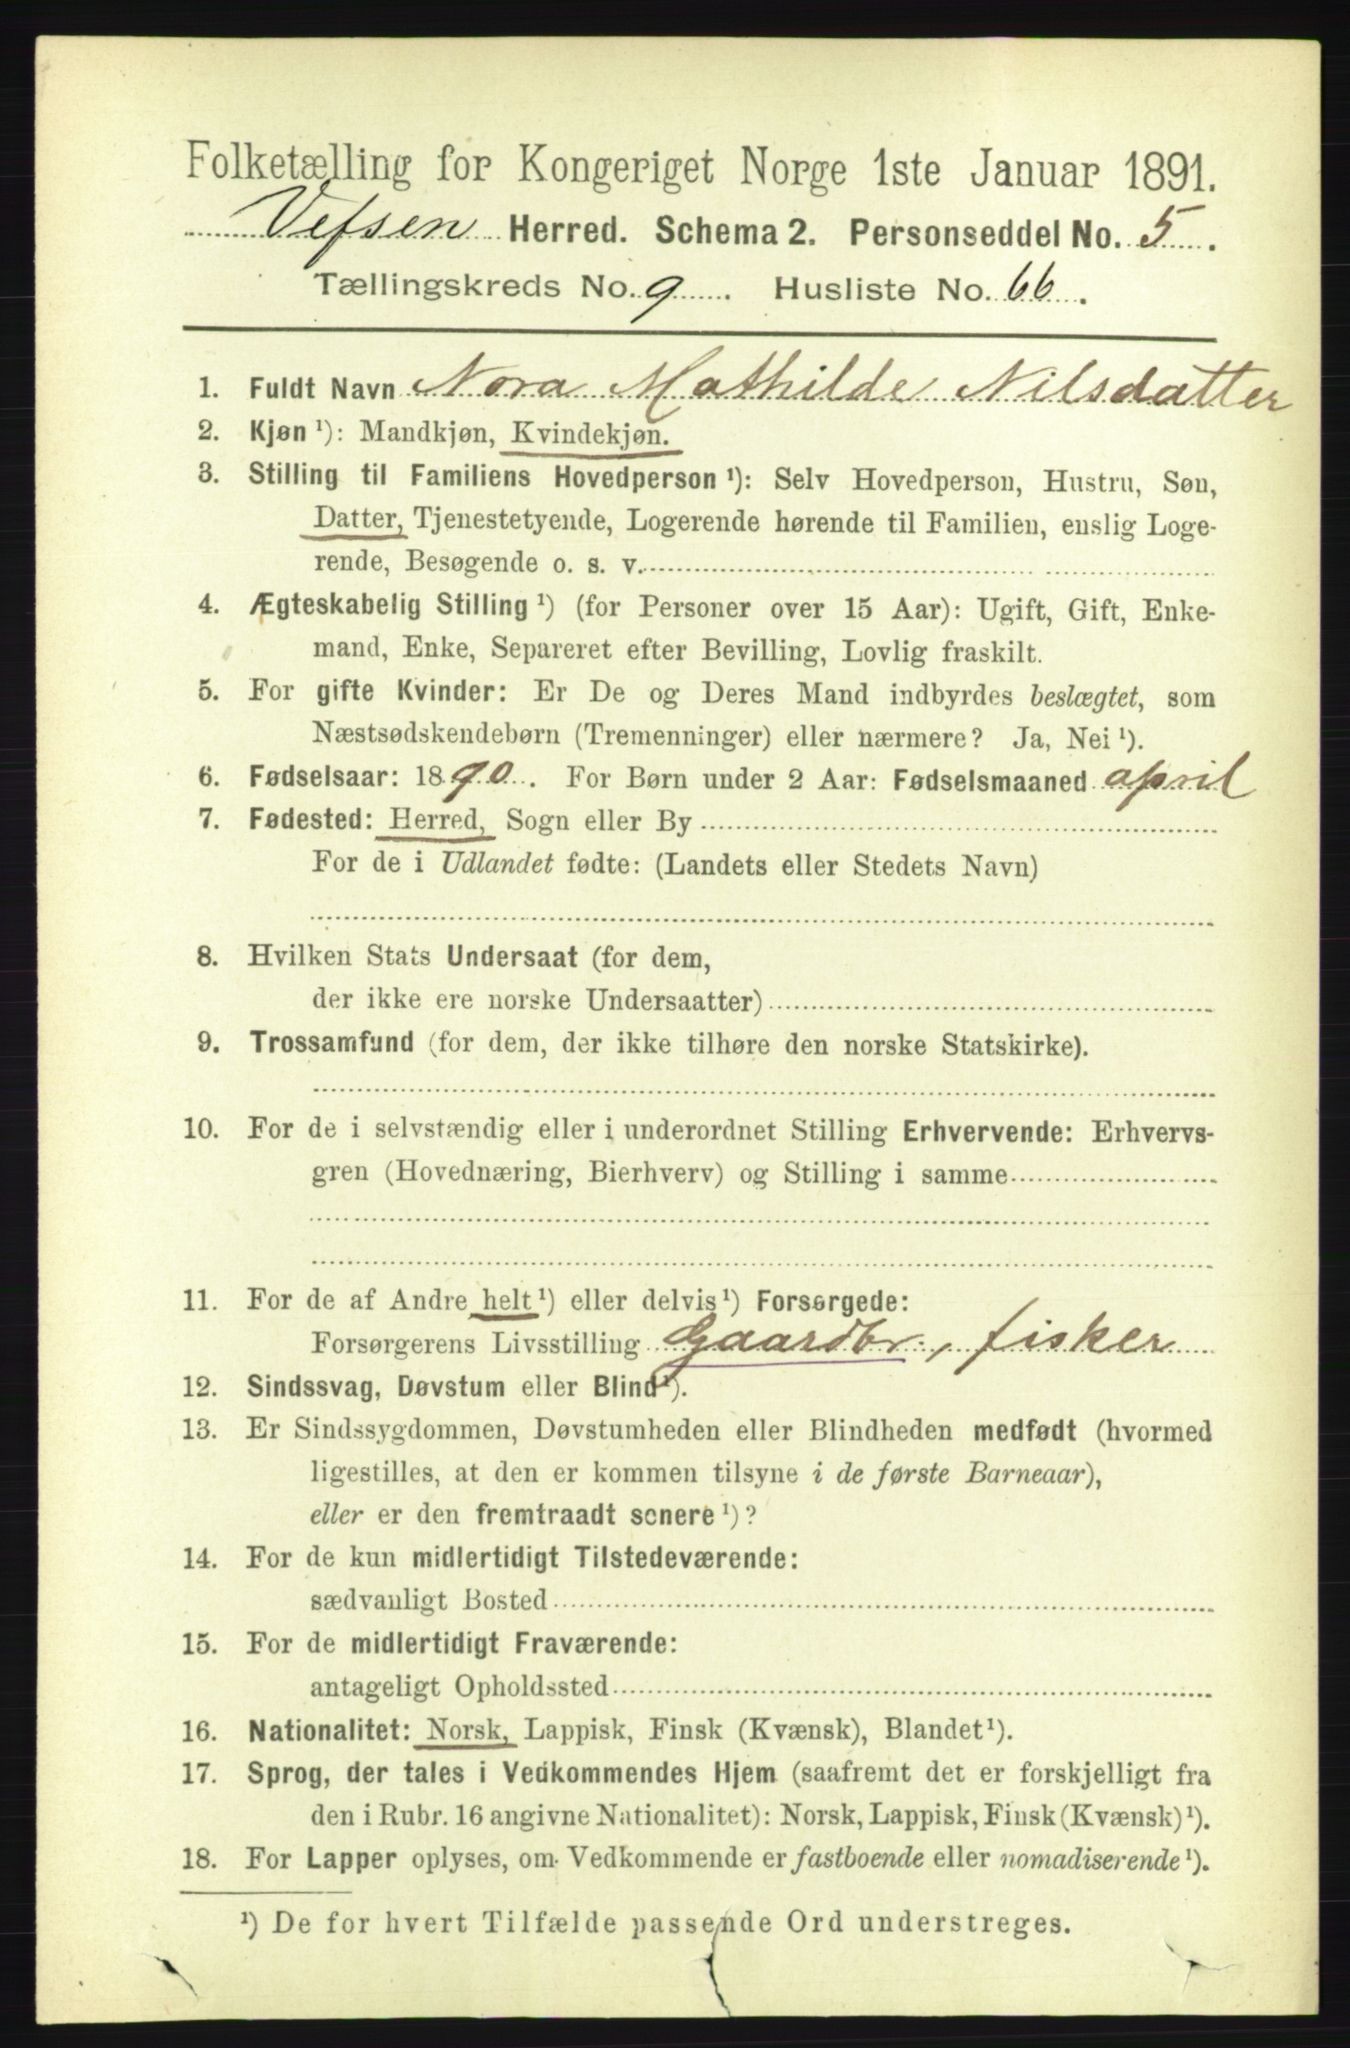 Folketælling for Kongeriget Norge 1ste Januar 1891.
Vefsen Herred. Schema 2. Personseddel No. 5.
Tællingskreds No. 9. Husliste No. 66.
1. Fuldt Navn Nora Mathilde Nilsdatter
2. Kjøn ¹): Mandkjøn, Kvindekjøn.
3. Stilling til Familiens Hovedperson ¹): Selv Hovedperson, Hustru, Søn,
Datter, Tjenestetyende, Logerende hørende til Familien, enslig Loge-
rende, Besøgende o. s. v.
4. Ægteskabelig Stilling ¹) (for Personer over 15 Aar): Ugift, Gift, Enke-
mand, Enke, Separeret efter Bevilling, Lovlig fraskilt.
5. For gifte Kvinder: Er De og Deres Mand indbyrdes beslægtet, som
Næstsødskendebørn (Tremenninger) eller nærmere? Ja, Nei ¹).
6. Fødselsaar: 1890. For Børn under 2 Aar: Fødselsmaaned april
7. Fødested: Herred, Sogn eller By
For de i Udlandet fødte: (Landets eller Stedets Navn)
8. Hvilken Stats Undersaat (for dem,
der ikke ere norske Undersaatter)
9. Trossamfund (for dem, der ikke tilhøre den norske Statskirke).
10. For de i selvstændig eller i underordnet Stilling Erhvervende: Erhvervs-
gren (Hovednæring, Bierhverv) og Stilling i samme
11. For de af Andre helt ¹) eller delvis ¹) Forsørgede:
Forsørgerens Livsstilling Gaardbr., fisker
12. Sindssvag, Døvstum eller Blind ¹).
13. Er Sindssygdommen, Døvstumheden eller Blindheden medfødt (hvormed
ligestilles, at den er kommen tilsyne i de første Barneaar),
eller er den fremtraadt senere ¹)?
14. For de kun midlertidigt Tilstedeværende:
sædvanligt Bosted
15. For de midlertidigt Fraværende:
antageligt Opholdssted
16. Nationalitet: Norsk, Lappisk, Finsk (Kvænsk), Blandet ¹).
17. Sprog, der tales i Vedkommendes Hjem (saafremt det er forskjelligt fra
den i Rubr. 16 angivne Nationalitet): Norsk, Lappisk, Finsk (Kvænsk) ¹).
18. For Lapper oplyses, om Vedkommende er fastboende eller nomadiserende ¹).
¹) De for hvert Tilfælde passende Ord understreges.